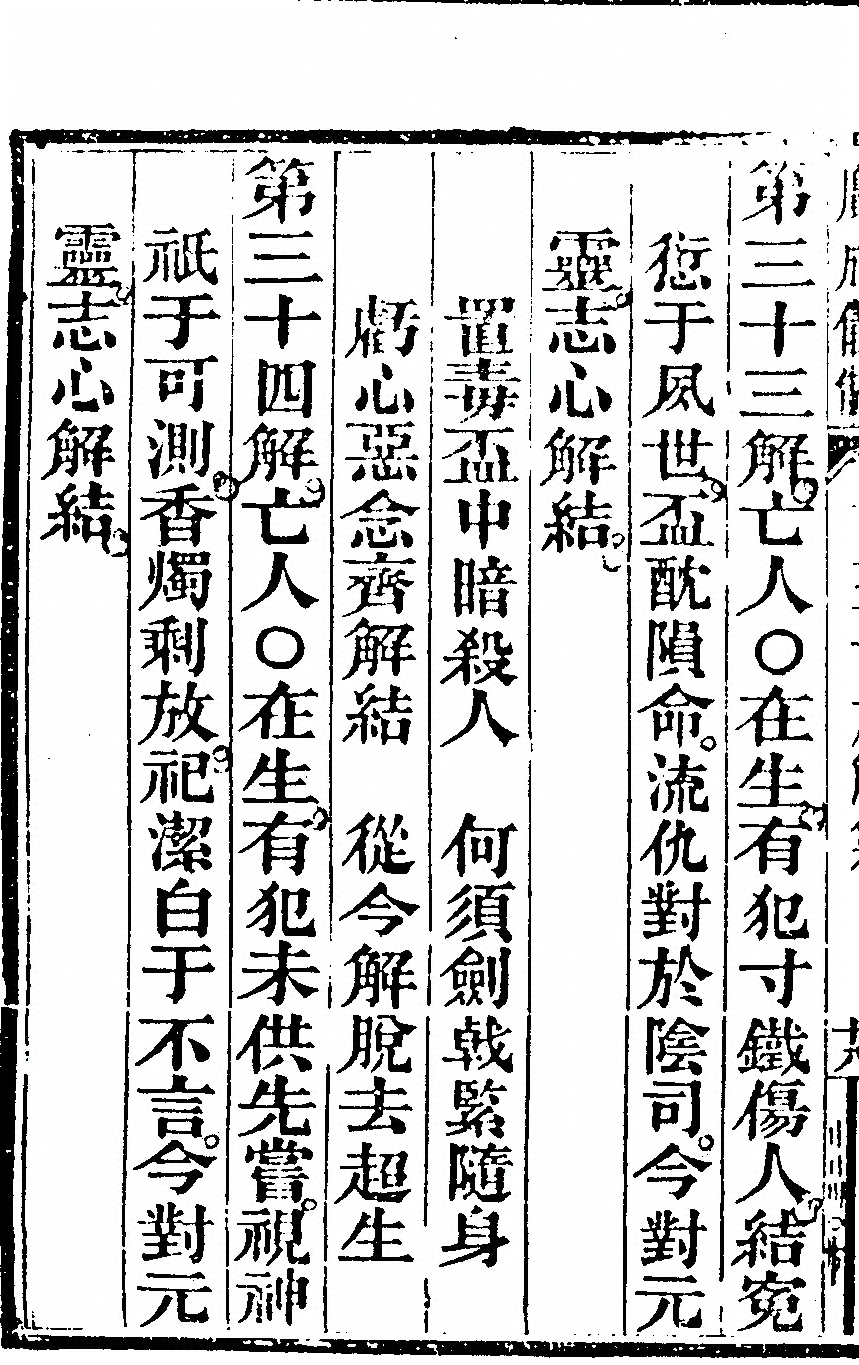 第三十三解亡人○在生有犯寸鐵傷人結寃
愆于夙世盃酖隕命流仇對於陰司今對元
靈志心解結
置毒盃中暗殺人　何須劍戟緊隨身
虧心惡念齊解結　從今解脫去超生
第三十四解亡人○在生有犯未供先嘗視神
祇于可測香燭剩放祀潔白于不言今對元
靈志心解結